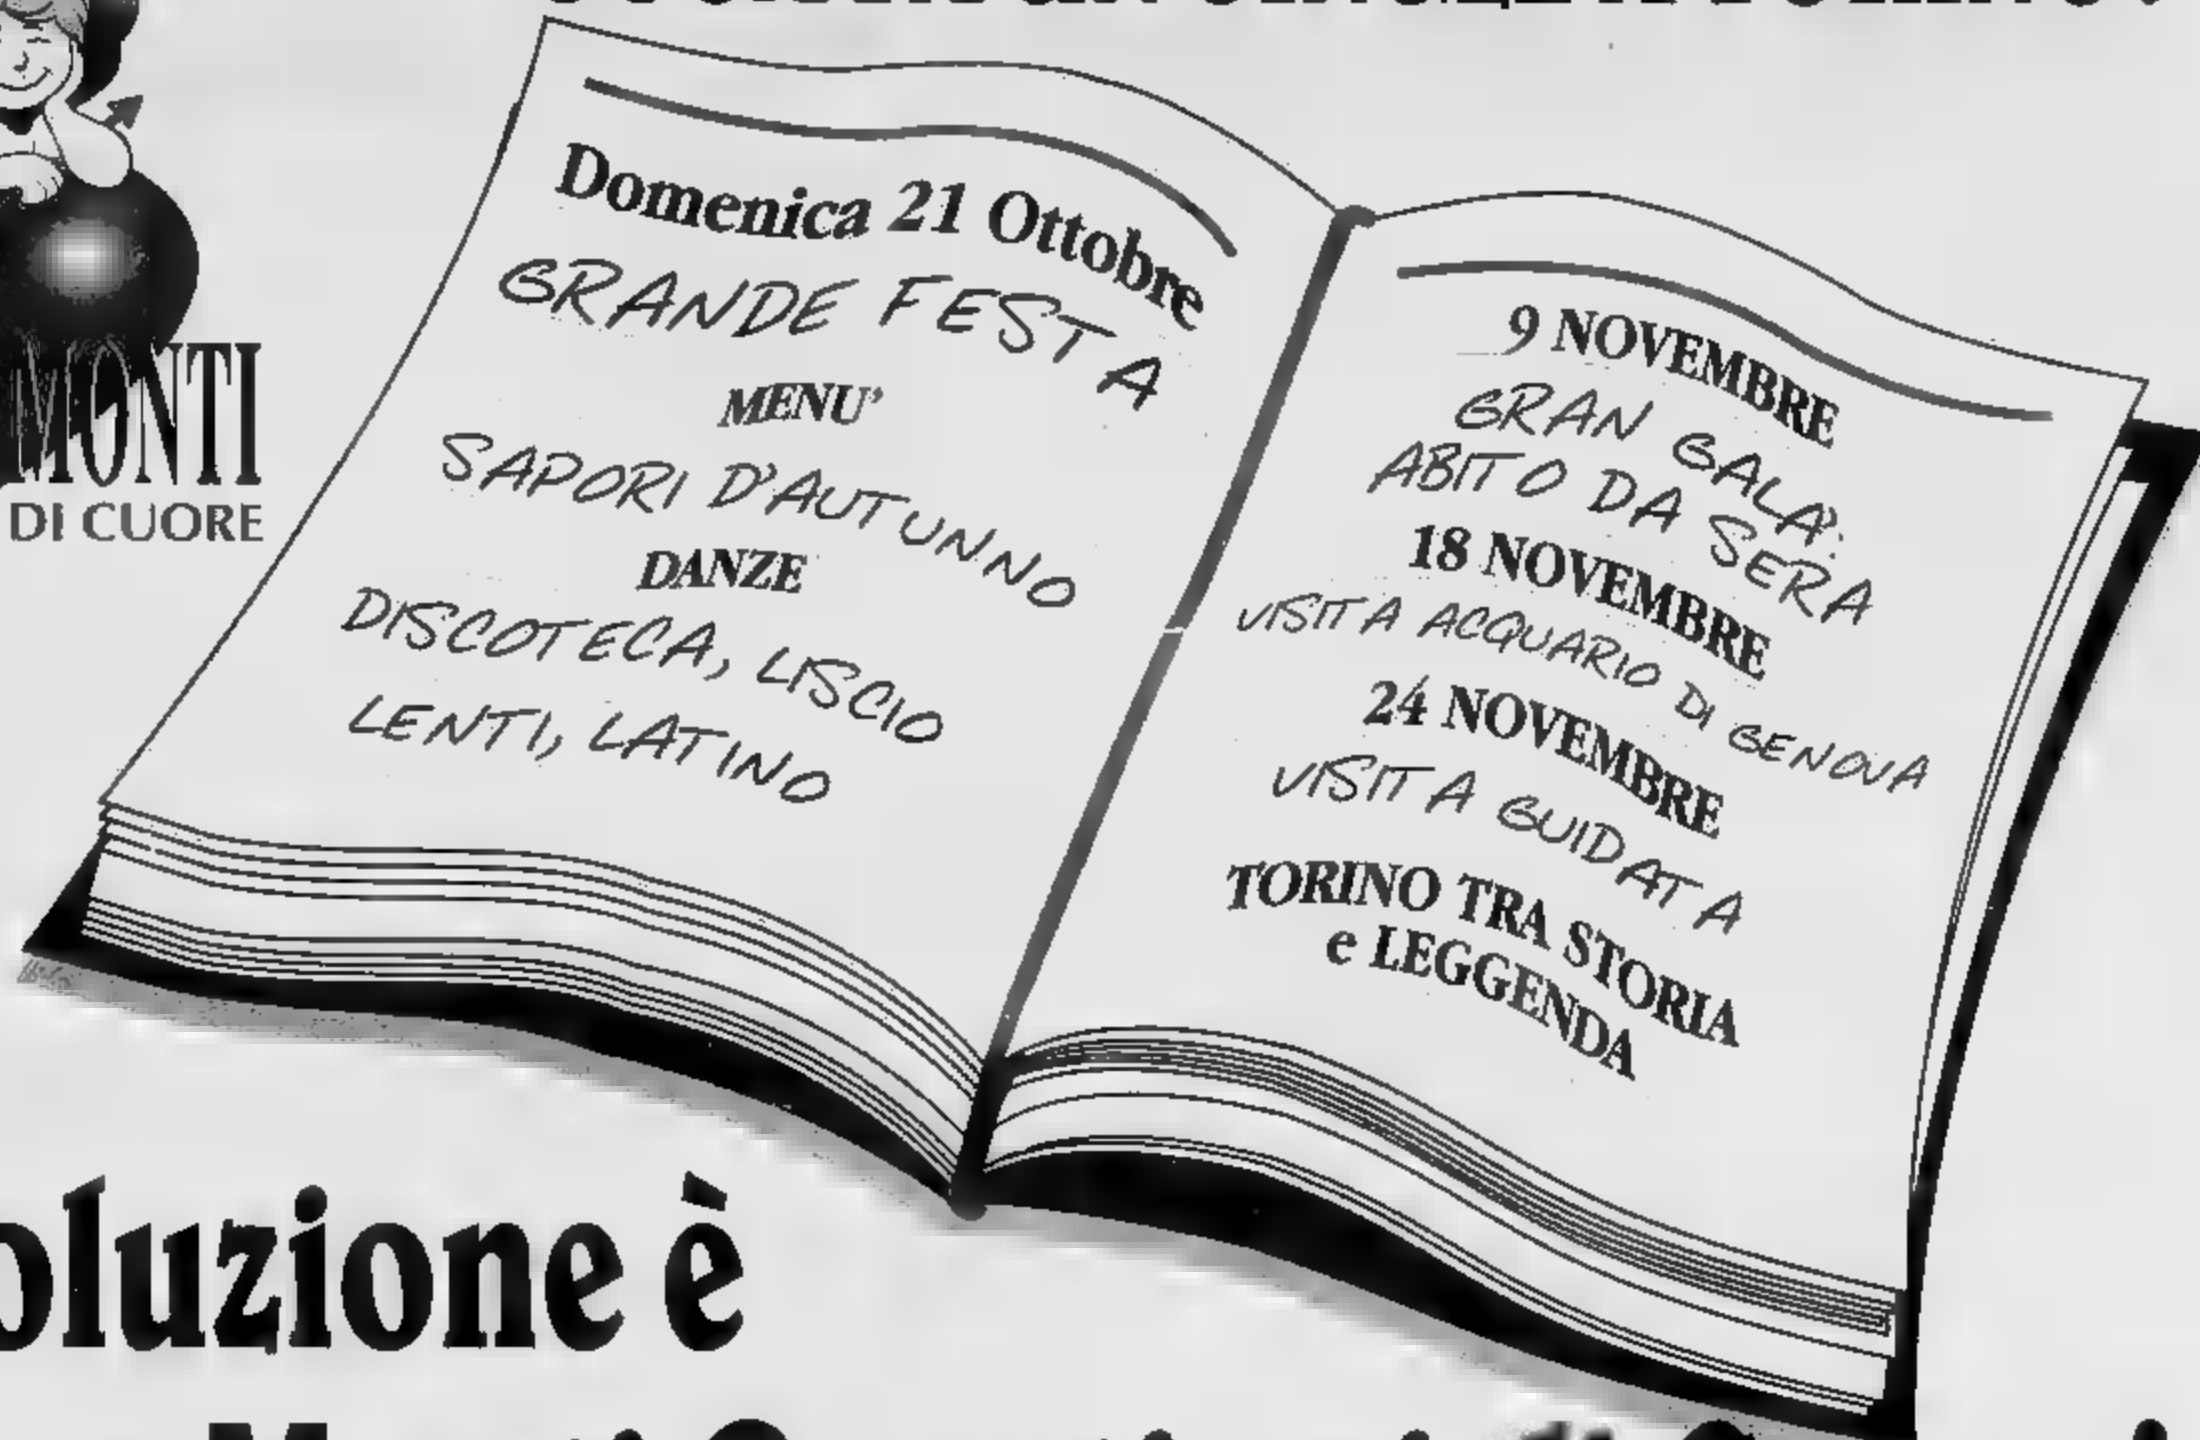 MONTI
DI CUORE
Domenica 21 Ottobre
GRANDE FESTA
MENU'
SAPORI D'AUTUNNO
DANZE
DISCOTECA, LISCIO
LENTI, LATINO
9 NOVEMBRE
GRAN GALA':
ABITO DA SERA
18 NOVEMBRE
VISITA ACQUARIO DI GENOVA
24 NOVEMBRE
VISITA GUIDATA
TORINO TRA STORIA
e LEGGENDA
oluzione è